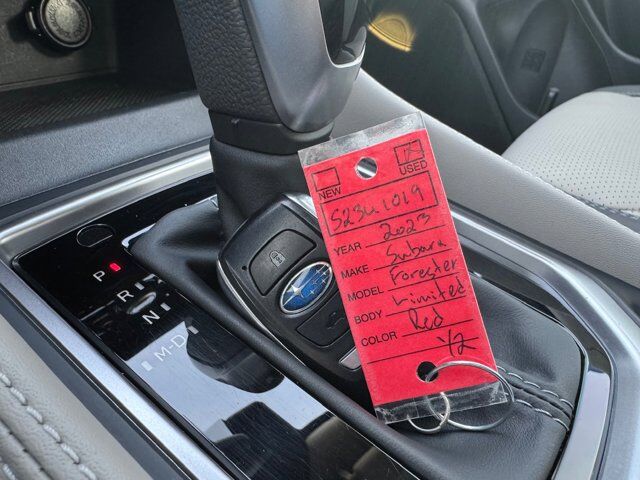 NEW
USED
S23U1019
YEAR 2023
MAKE Subaru
MODEL Forester
BODY Limited
COLOR Red
1/2
P
R
N
M-D